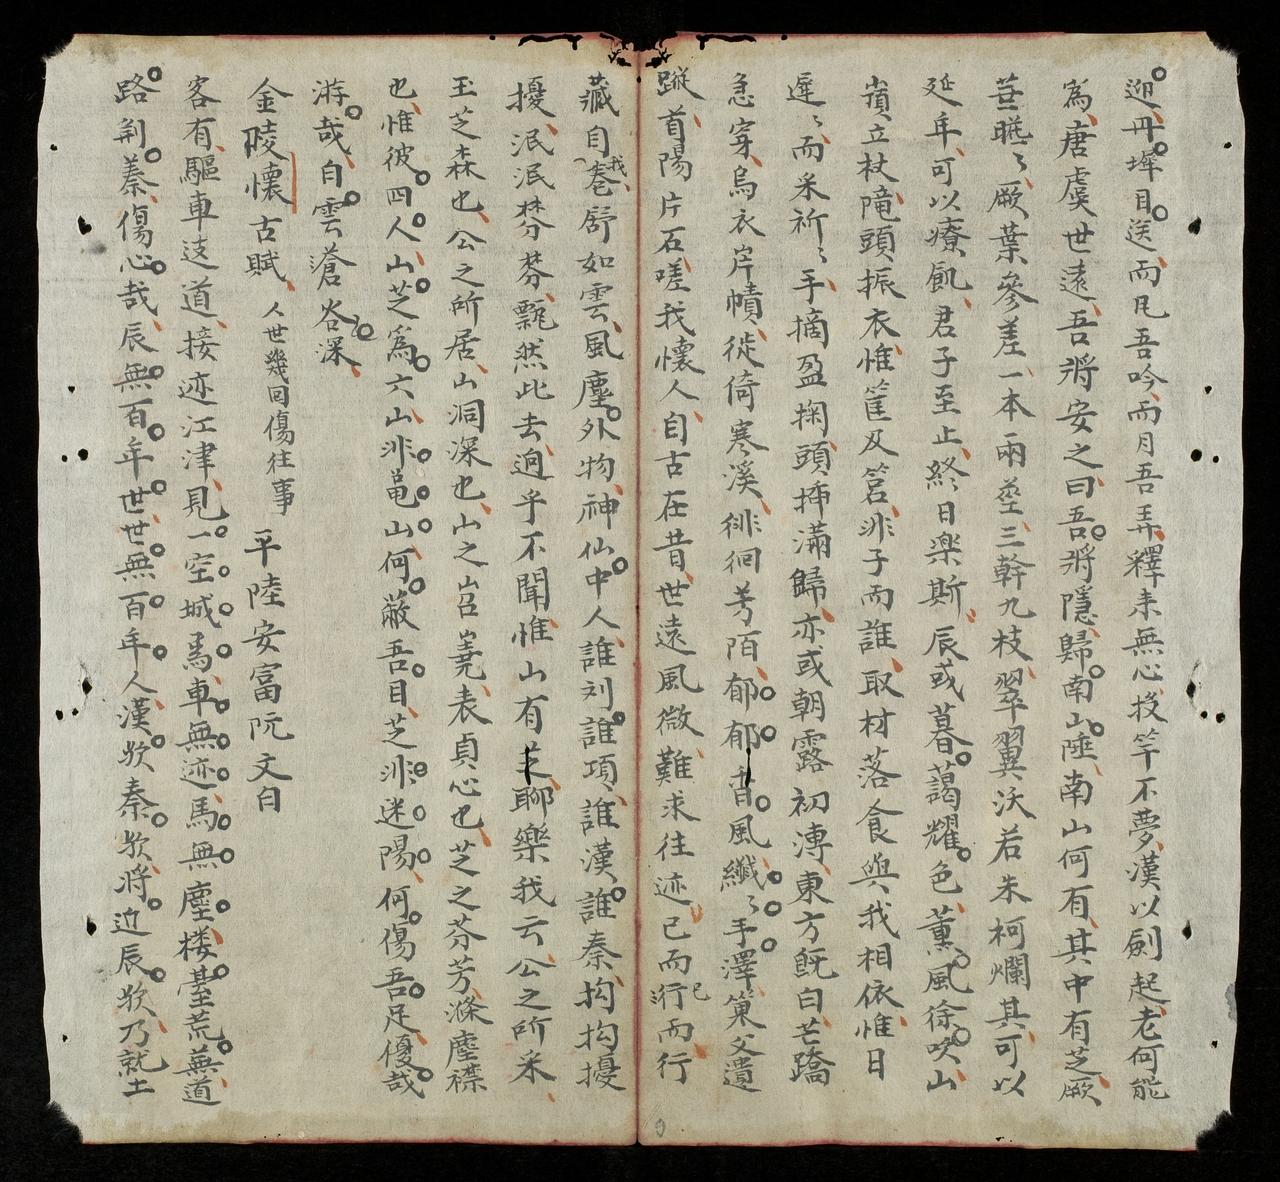 迎丹墀目送而凡吾吟而月吾弄釋耒無心投竿不夢漢以劍起老何能
為唐虞世遠吾將安之曰吾將隱歸南山陲南山何有其中有芝厥
荁曣〻厥葉參差一本兩莖三幹九枝翠翼沃若朱柯爛其可以
延年可以療飢君子至止終日樂斯辰或暮藹耀色薰風徐吹山
嵿立杖隴頭振衣惟筐及筥非子而誰取材落食與我相依惟日
遲〻而采祈〻手摘盈掬頭揷滿歸亦或朝露初漙東方既白芒蹻
急穿烏衣岸幘徙倚寒溪徘徊芳陌郁郁香風纖〻手澤巢父遺
蹤首陽片石嗟我懷人自古在昔世遠風微難求往迹已而已行而行
藏自我卷舒如雲風塵外物神仙中人誰刘誰項誰漢誰秦抅抅擾
擾泯泯棼棼飄然此去逈乎不聞惟山有芝聊樂我云公之所采
玉芝森也公之所居山洞深也山之岧嶤表貞心也芝之芬芳滌塵襟
也惟彼四人山芝爲六山非黽山何蔽吾目芝非迷陽何傷吾足優哉
游哉白雲滄谷深
金陵懷古賦 人世幾回傷往事 平陸安富阮文白
客有驅車逵道接迹江津見一空城馬車無迹馬無塵楼臺荒蕪道
路荆蓁傷心哉辰無百年世世無百年人漢欤秦欤將近辰欤乃就土